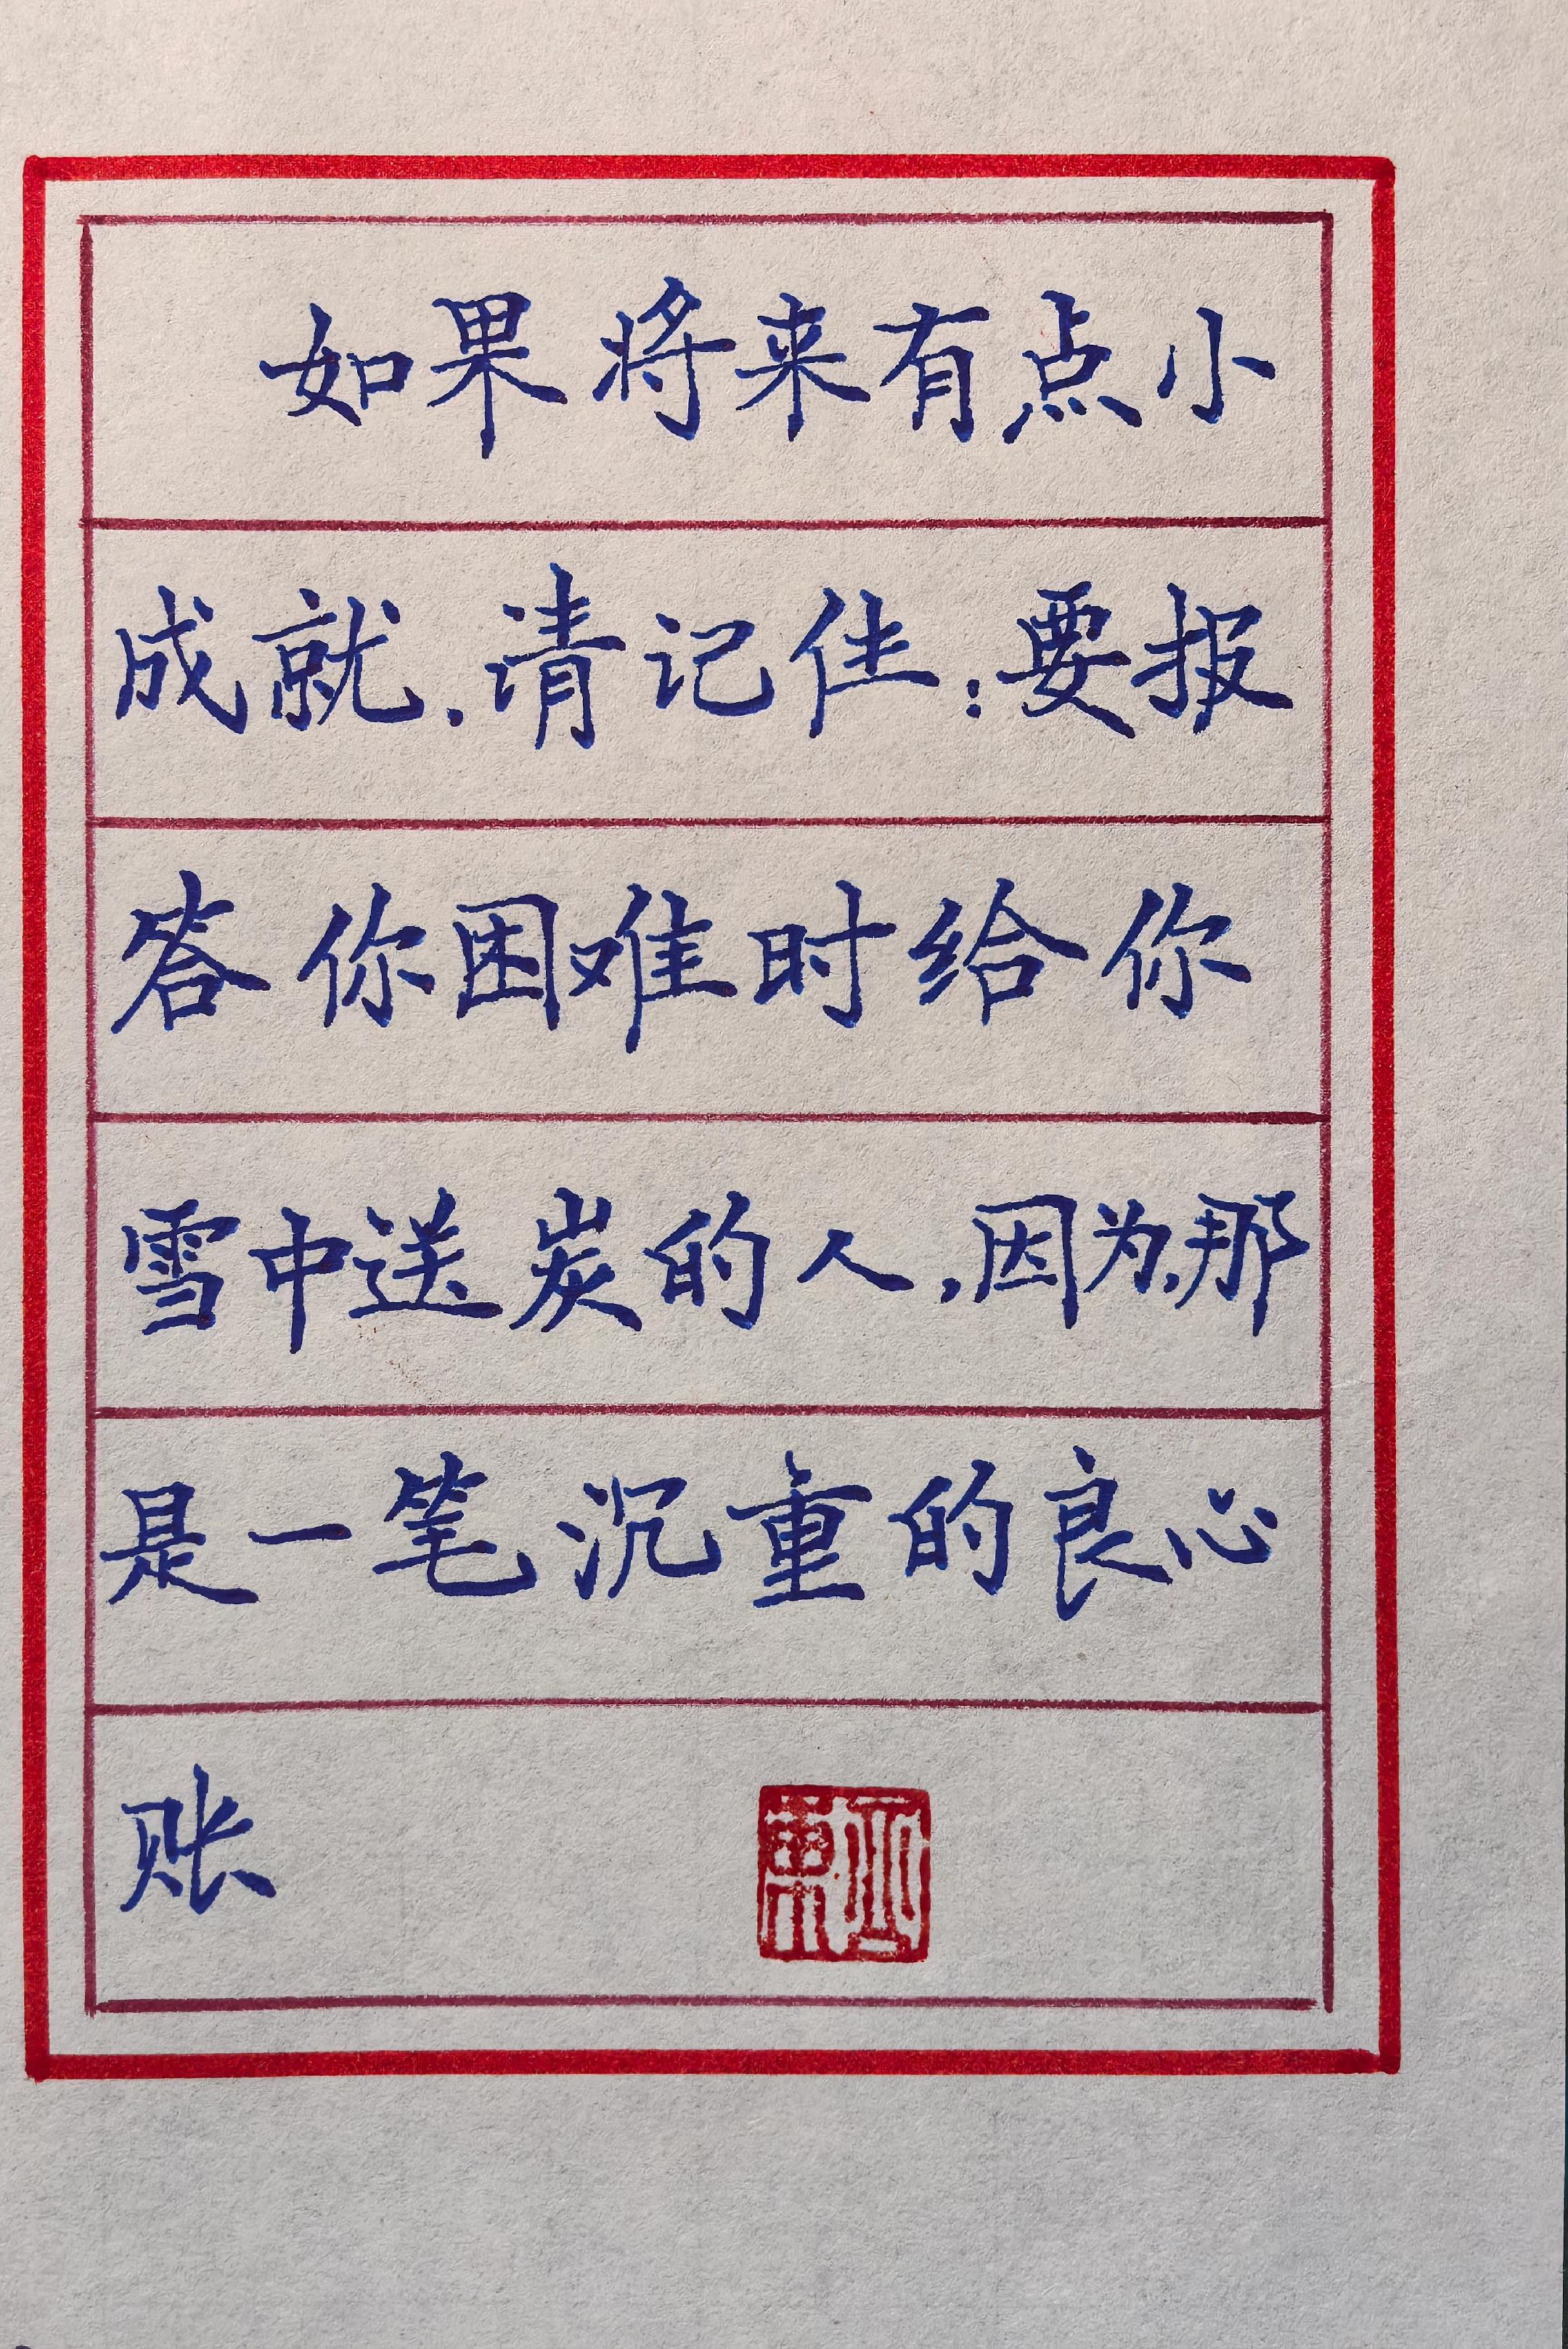 如果将来有点小
成就.请记住:要报
答你困难时给你
雪中送炭的人,因为,那
是一笔沉重的良心
账